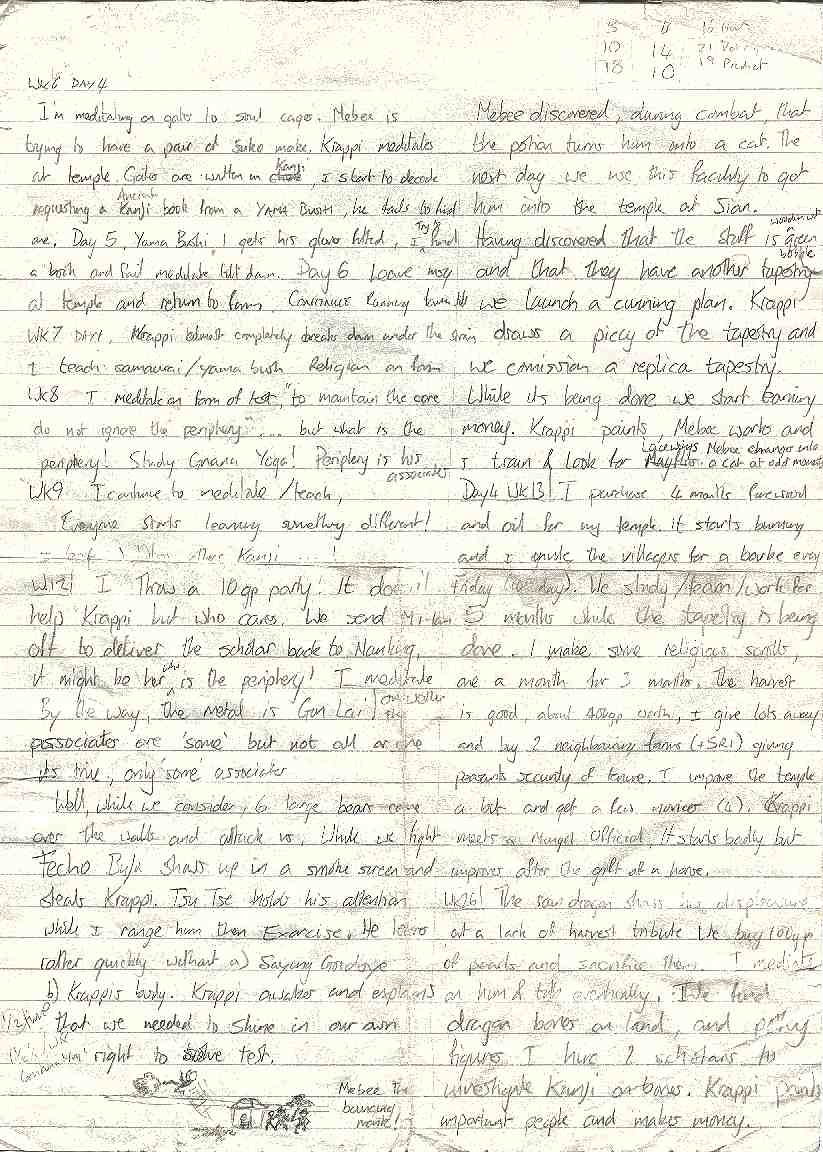 3 11 16
10 14 21
18 10 19 Predict
WK6 DAY 4
I'm meditating on gates to soul cages. Mebee is
trying to have a pair of Suko make. Krappi meditates
at temple. Gates are written in Kanji, I start to decode
requesting a Ancient Kanji book from a YAMA BUSHI, he fails to find
one. Day 5, Yama Bushi 1 gets his glove fitted, I Try to find
a book and fail meditate till dawn. Day 6 Leave
at temple and return to farm. Continue Running
WK7 DAY1, Krappi almost completely breaks down under the strain
I teach samurai/yama bushi Religion on farm
Wk8 I meditate on form of test, "to maintain the core
do not ignore the periphery" ... but what is the
periphery! Study Gnana Yoga! Periphery is his associates
Wk9 I continue to meditate/teach,
Everyone starts learning something different!
Kanji ... !
Wk12! I Throw a 10gp party! It doesn't
help Krappi but who cares. We send
off to deliver the scholar back to Nanking,
it might be her who is the periphery! I meditate
By the way, the metal is Gun Lai
associates are 'some' but not all or the
its true, only 'some' associates
Well, while we consider, 6 large bears come
over the walls and attack us, While we fight
Fecho Byla shows up in a smoke screen and
steals Krappi. Tsu Tse holds his attention
while I range him then Exercise. He leaves
rather quickly without a) Saying Goodbye
b) Krappis body. Krappi awakes and explains
that we needed to shine in our own
right to solve test.
Mebee The
bouncing
monk!
Mebee discovered, during combat, that
the potion turns him into a cat. The
next day we use this faculty to get
him into the temple at Sian.
Having discovered that the staff is wooden not green
and that they have another tapestry
we launch a cunning plan. Krappi
draws a piccy of the tapestry and
we comission a replica tapestry.
While its being done we start earning
money. Krappi paints, Mebee works and
I train & look for Lacewings Mebee changes into
a cat at odd moments
Day4 WK13! I purchase 4 months firewood
and oil for my temple. it starts burning
and I invite the villagers for a barbe every
Friday (10 day). We study/learn/work for
5 months while the tapestry is being
done. I make some religious scrolls,
one a month for 3 months. The harvest
is good, about 400gp worth, I give lots away
and buy 2 neighbouring farms (+SR1) giving
peasants security of tenure. I improve the temple
a bit and get a few novices (4). Krappi
meets a Mongol Official, It starts badly but
improves after the gift of a horse.
Wk26! The sea dragon shows his displeasure
at a lack of harvest tribute We buy 100gp
of pearls and sacrifice them. I meditate
on him & talk eventually. We find
dragon bones on land, and
figures I hire 2 scholars to
investigate Kanji on bones. Krappi paints
important people and makes money.